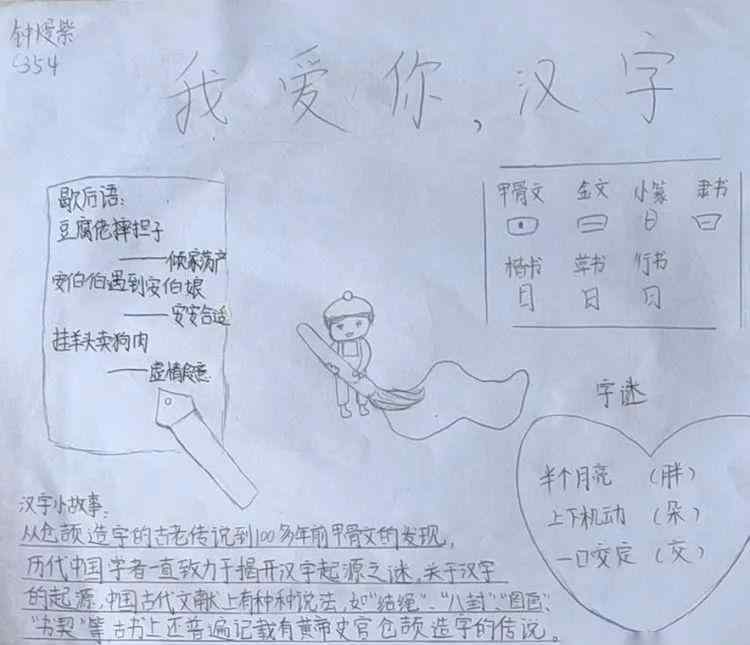 C354
我爱你,汉字
歇后语:
豆腐佬摔担子
——倾家荡产
安伯伯遇到安伯娘
——安安合适
挂羊头卖狗肉
——虚情假意
甲骨文 金文 小篆 隶书
楷书 草书 行书
字谜
半个月亮 (胖)
上下机动 (朵)
一口咬定 (交)
汉字小故事:
从仓颉造字的古老传说到100多年前甲骨文的发现,
历代中国学者一直致力于揭开汉字起源之谜,关于汉字
的起源,中国古代文献上有种种说法,如“结绳”、“八卦”、“图画”、
“书契”等古书上还普遍记载有黄帝史官仓颉造字的传说。